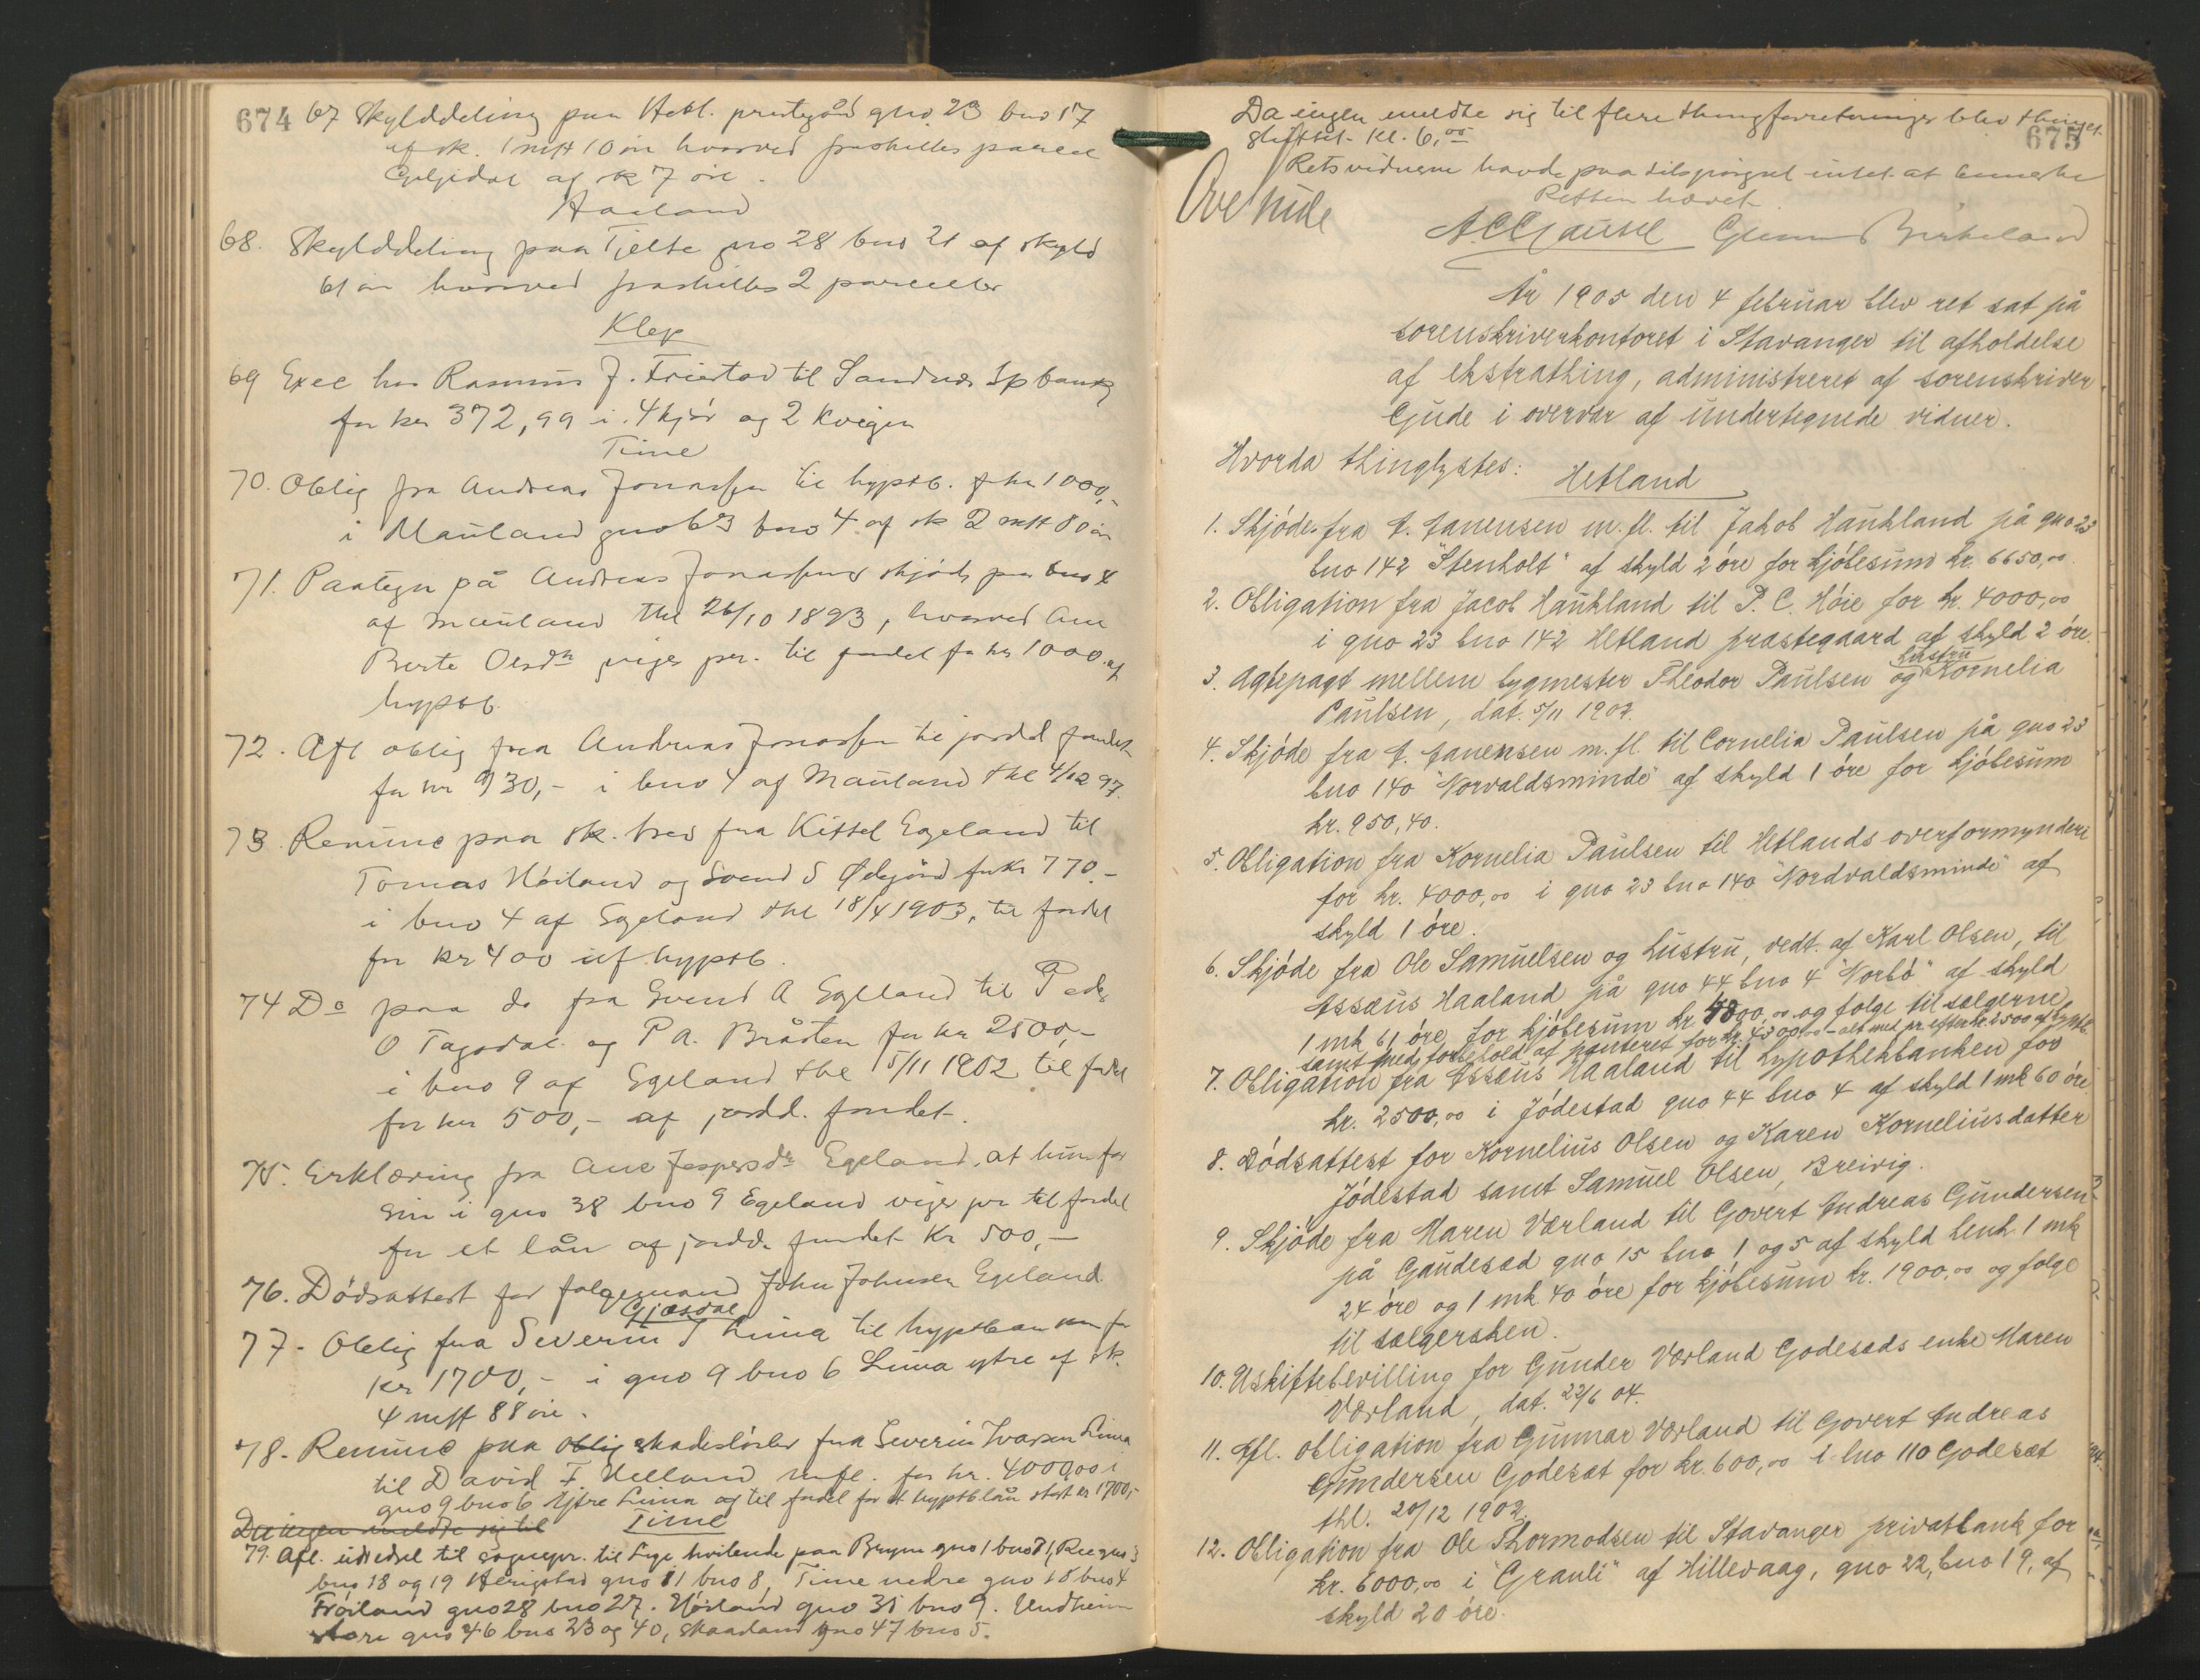 674 67 Skylddeling paa Hetl. prestegård gno. 23 bno 17
af sk. 1 mrk 10 øre hvorved fraskilles parcel
af sk 7 øre.
Haaland
68. Skylddeling paa Tjelte gno 28 bno 21 af skyld
61 øre hvorved fraskilles 2 parceller
Klep
69 Exec hos Rasmus J. Friestad til Sandnes Spbank
for kr 372,99 i 4 kjør og 2 Kviger
Time
70. Oblig fra Andreas Jonassen til hyptb. f kr 1000,-
i Mauland gno 63 bno 4 af sk 2 mrk 80 øre
71. Paategn på Andreas Jonassens skjøde paa bno 4
af Mauland thl 26/10 1893, hvorved Ane
Berte Olsdtr viger pr. til fordel for kr 1000 af
hyptb.
72. Afl oblig fra Andreas Jonassen til jordd fondet
for kr 930,- i bno 4 af Mauland thl 4/12 97.
73. Renunc paa sk. brev fra Kittel Egeland til
Tomas Høiland og Svend S Ødegård for kr 770,-
i bno 4 af Egeland thl 18/4 1903, til fordel
for kr 400 af hyptb.
74 Do paa do fra Svend A Egeland til Peder
O Tagsdal og P A. Bråten for kr 2500,-
i bno 9 af Egeland thl 15/11 1902 til fordel
for kr 500,- af jordd. fondet.
75. Erklæring fra Ane Jespersdtr Egeland, at hun for
sin i gno 38 bno 9 Egeland viger pr til fordel
for et lån af jordd. fondet Kr 500,-
76. Dødsattest for folgemand John Johnsen Egeland.
Gjesdal
77. Oblig fra Severin I Lima til hyptbanken for
kr 1700,- i gno 9 bno 6 Lima ytre af sk.
4 mrk 88 øre.
78. Renunc paa oblig skadesløsbr fra Severin Ivarsen Lima
til David T. Helland m fl. for kr. 4000,00 i
gno 9 bno 6 Ytre Lima og til fordel for et hyptblån stort kr 1700,-
Da ingen meldte sig til Time
79. Afl. udedsel til sognepr. til Lye hvilende paa Bryne gno 1 bno 71, Ree gno 3
bno 18 og 19 Hørigstad gno 11 bno 8, Time nedre gno 18 bno 4
Frøiland gno 28 bno 27. Høiland gno 31 bno 9. Undheim
store gno 46 bno 23 og 40, Skaaland gno 47 bno 5.
Da ingen meldte sig til flere thingforretninger blev thinget
sluttet. Kl. 6,00 675
Retsvidnerne havde paa tilspørgsel intet at bemerke
Retten hævet.
A C Gausel Gunnar Birkeland
År 1905 den 4 februar blev ret sat på
sorenskriverkontoret i Stavanger til afholdelse
af ekstrathing, administreret af sorenskriver
Gjude i overvær af undertegnede vidner.
Hvorda thinglystes:
Hetland
1. Skjøde fra T. Tanensen m. fl. til Jakob Haukland på gno 23
bno 142 "Stenholt" af skyld 2 øre for kjøbesum kr. 6650,00
2. Obligation fra Jacob Haukland til P. C. Høie for kr. 4000,00
i gno 23 bno 142 Hetland præstegaard af skyld 2 øre.
3. Agtepagt mellem bygmester Theodor Paulsen og hustru Kornelia
Paulsen, dat. 5/11 1902.
4. Skjøde fra T. Tanensen m. fl. til Cornelia Paulsen på gno 23
bno 140 "Norvaldsminde" af skyld 1 øre for kjøbesum
kr. 950,40.
5. Obligation fra Kornelia Paulsen til Hetlands overformynderi
for kr. 4000,00 i gno 23 bno 140 "Nordvaldsminde" af
skyld 1 øre.
6. Skjøde fra Ole Samuelsen og hustru, vedt. af Karl Olsen, til
Assæus Haaland på gno 44 bno 4 "Norbø" af skyld
1 mk 61 øre for kjøbesum kr. 4800,00 og folge til sælgerne
samt med forbehold af panteret for kr. 4300,00 - alt med pr. efter kr. 2500 af hyptb.
7. Obligation fra Assæus Haaland til hypothekbanken for
kr. 2500,00 i Jødestad gno 44 bno 4 af skyld 1 mk 60 øre.
8. Dødsattest for Kornelius Olsen og Karen Korneliusdatter
Jødestad samt Samuel Olsen, Breivig.
9. Skjøde fra Maren Værland til Govert Andreas Gundersen
på Gaudesæd gno 15 bno 1 og 5 af skyld henh. 1 mk
24 øre og 1 mk 40 øre for kjøbesum kr. 1900,00 og folge
til sælgersken.
10. Uskiftebevilling for Gunder Værland Godesæds enke Maren
Værland, dat. 22/6 04.
11. Afl. obligation fra Gunnar Værland til Govert Andreas
Gundersen Godesæt for kr. 600,00 i bno 110 Godesæt
thl. 20/12 1902.
12. Obligation fra Ole Thormodsen til Stavanger privatbank for
kr. 6000,00 i "Grauli" af Hillevaag, gno 22, bno 19, af
skyld 20 øre.